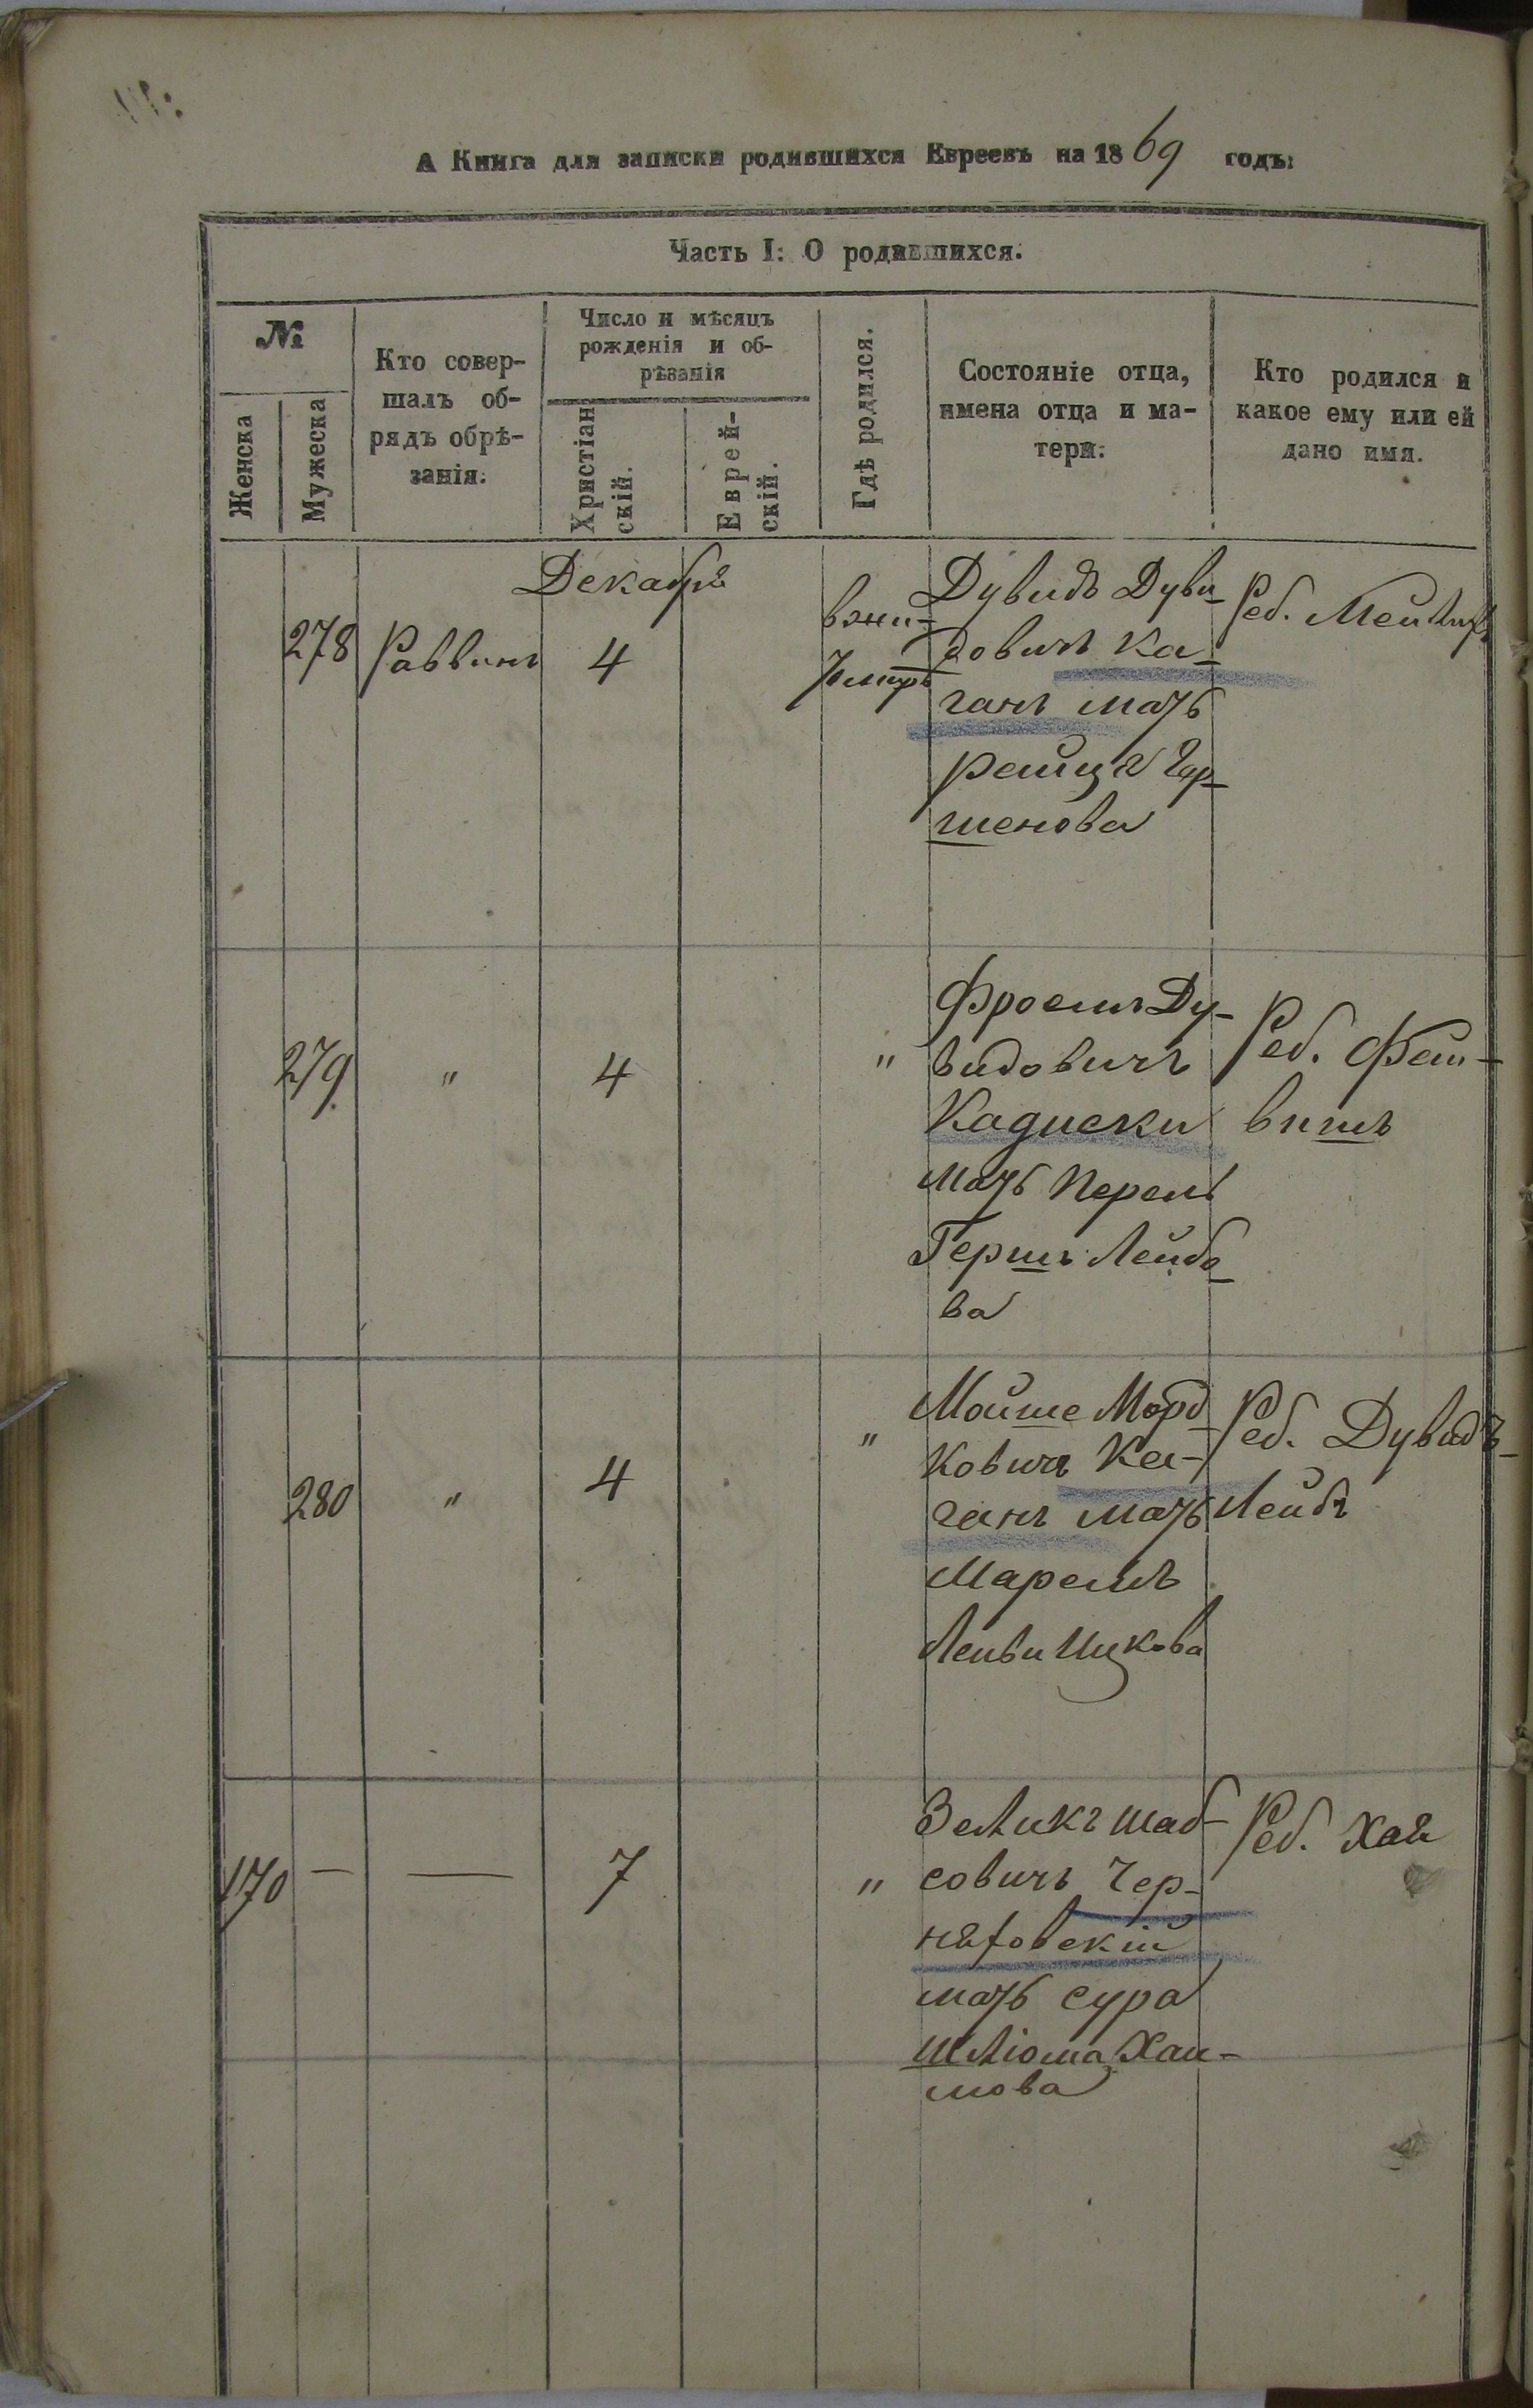 А Книга для записки родившихся Евреевъ на 1869 годъ:
Часть I: О родившихся.
№
Женска
Мужеска
Кто совер-
шалъ об-
рядъ обрѣ-
занія:
Число и мѣсяцъ
рожденія и об-
рѣзанія
Христіан
скій.
Еврей-
скій.
Гдѣ родился.
Состояніе отца,
имена отца и ма-
тери:
Кто родился и
какое ему или ей
дано имя.
Декабря
278 Раввинъ 4
Дувидъ Дуви-
довичъ Ка-
ганъ мать
Рейця Гер-
шенова
Реб.
279 " 4 "
Фроемъ Ду-
видовичъ
мать Перель
Гершъ Лейбо-
ва
Реб. Фай-
вишъ
280 " 4 "
Мойше Морд-
ковичъ Ка-
ганъ мать
Лейви Ицкова
Реб. Дувидъ-
Лейбъ
170 — — 7 "
Зеликъ Шаб-
совичъ Чер-
няховскій
мать Сура
Шліома Хаи-
мова
Реб. Хая